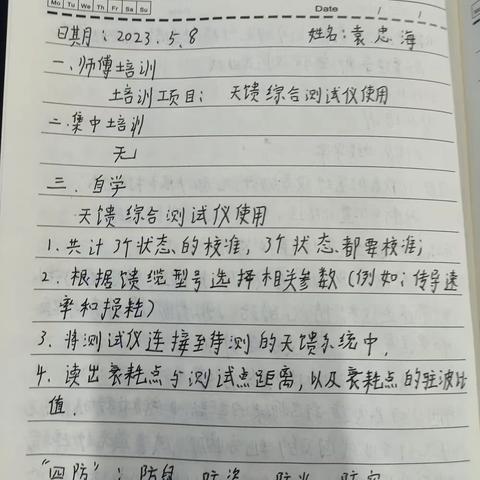 Mo Tu We Th Fr Sa Su
Date / /
日期: 2023.5.8 姓名: 袁忠海
一.师傅培训
培训项目: 天馈综合测试仪使用
二.集中培训
无
三. 自学
天馈综合测试仪使用
1.共计3个状态的校准,3个状态都要校准;
2.根据馈缆型号选择相关参数(例如:传导速
率和损耗)
3.将测试仪连接至待测的天馈系统中.
4.读出衰耗点与测试点距离,以及衰耗点的驻波比
值.
"四防": 防鼠 防盗 防火